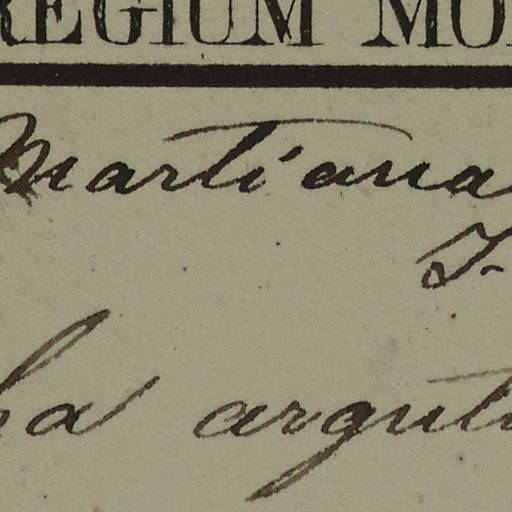 REGIUM MO
Martiana
J.
ba argut